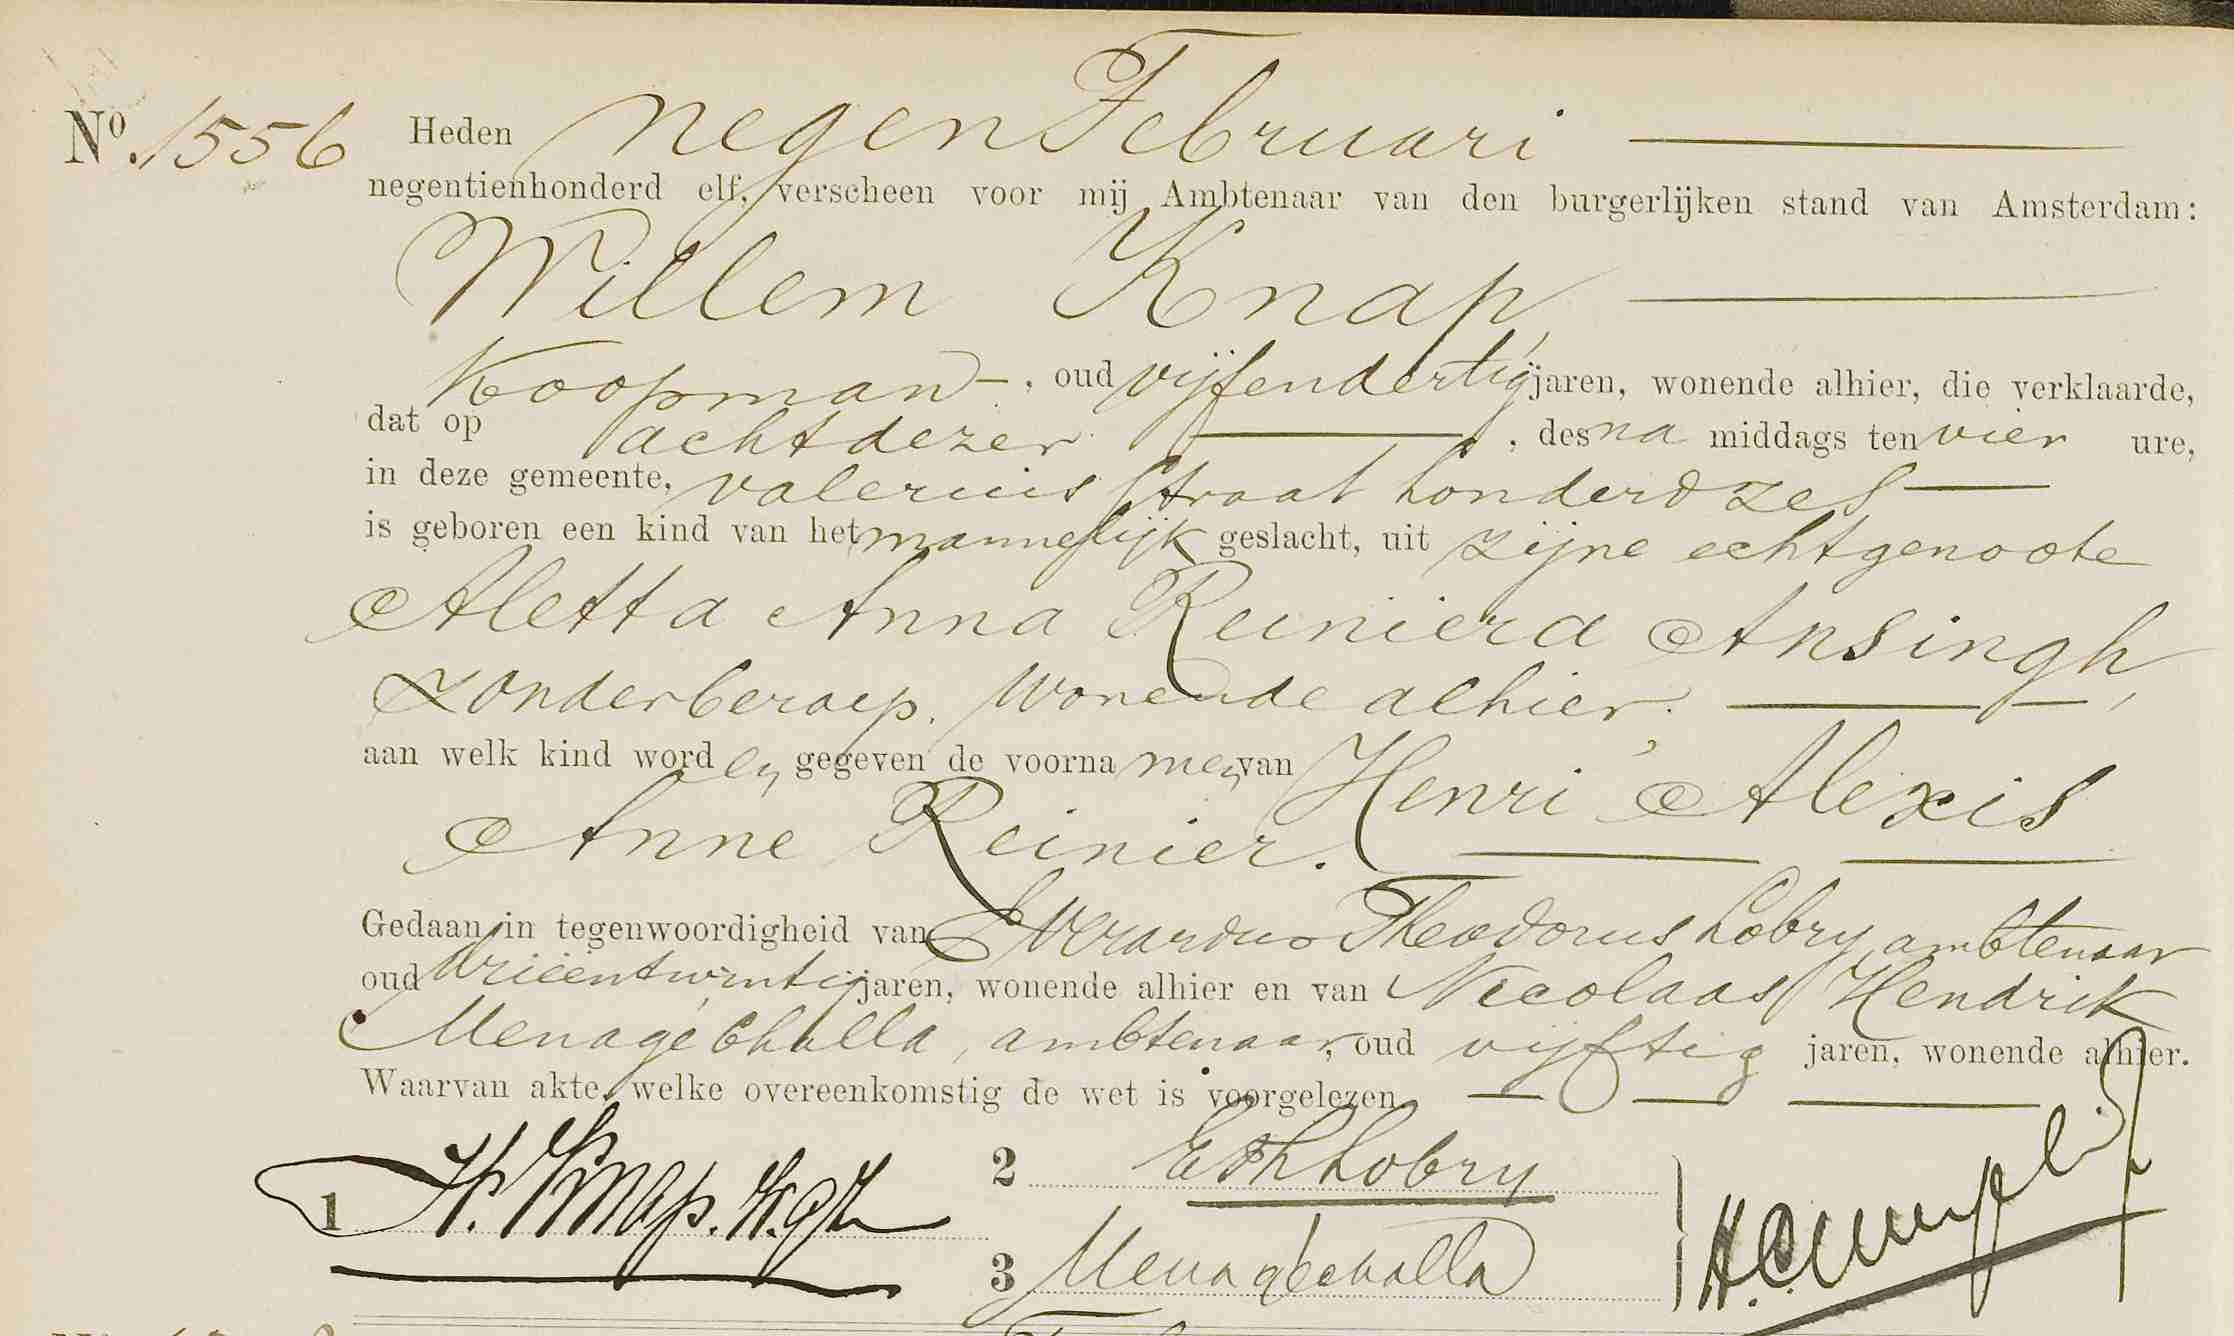 No. 1556 Heden negen Februari
negentienhonderd elf, verscheen voor mij Ambtenaar van den burgerlijken stand van Amsterdam:
Willem Knap,
Koopman, oud vijfendertig jaren, wonende alhier, die verklaarde,
dat op acht dezer, des na middags ten vier ure,
in deze gemeente, Valeriusstraat honderd zes
is geboren een kind van het mannelijk geslacht, uit zijne echtgenoote
Aletta Anna Reiniera Ansingh,
zonder beroep, wonende alhier.
aan welk kind worden gegeven de voornamen van Henri Alexis
Anne Reinier.
Gedaan in tegenwoordigheid van Everardus Theodorus Lobry, ambtenaar
oud drieëntwintig jaren, wonende alhier en van Nicolaas Hendrik
Menagé Challa, ambtenaar, oud vijftig jaren, wonende alhier.
Waarvan akte, welke overeenkomstig de wet is voorgelezen
1 W. Knap. W.gz
2 EThLobry
3 Menagéchalla